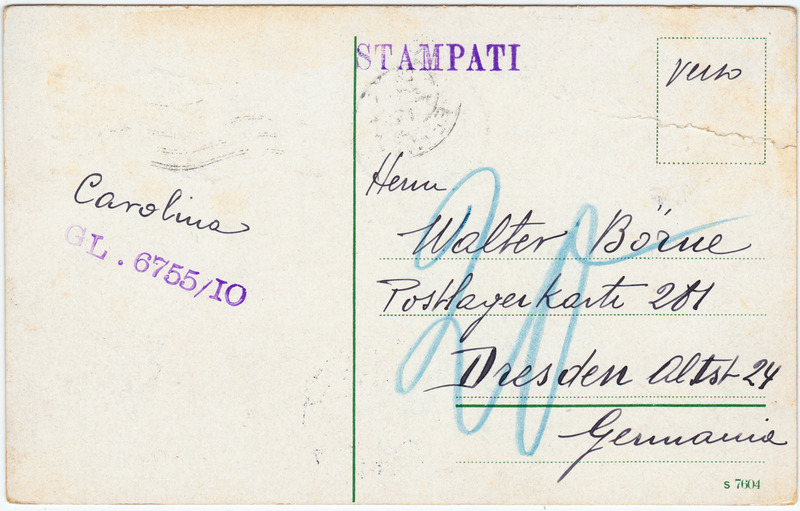 STAMPATI
verso
Carolina
GL. 6755/IO
20
Herrn
Walter Börne
Postlagerkarte 201
Dresden Altst 24
Germania
s 7604